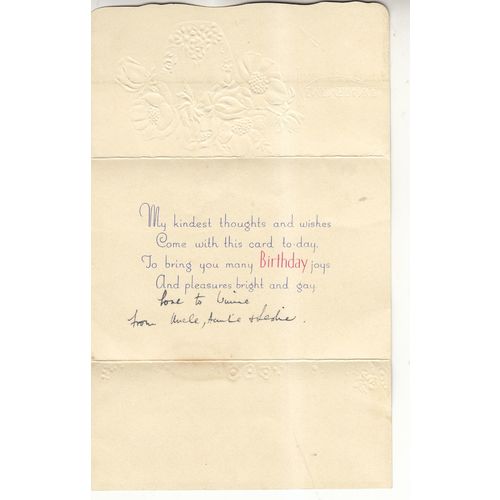 My kindest thoughts and wishes
Come with this card to-day,
To bring you many Birthday joys
And pleasures bright and gay.
Love to Winnie
from Uncle, Auntie & Leslie.